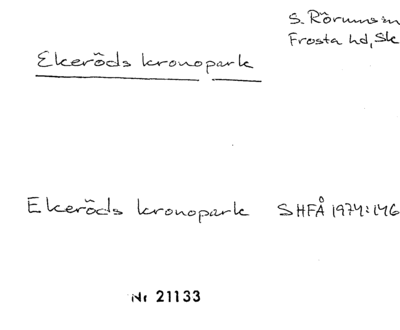 S. Rörums sn
Frosta hd, Sk
Ekeröds kronopark
Ekeröds kronopark SHFÅ 1974:146
Nr 21133